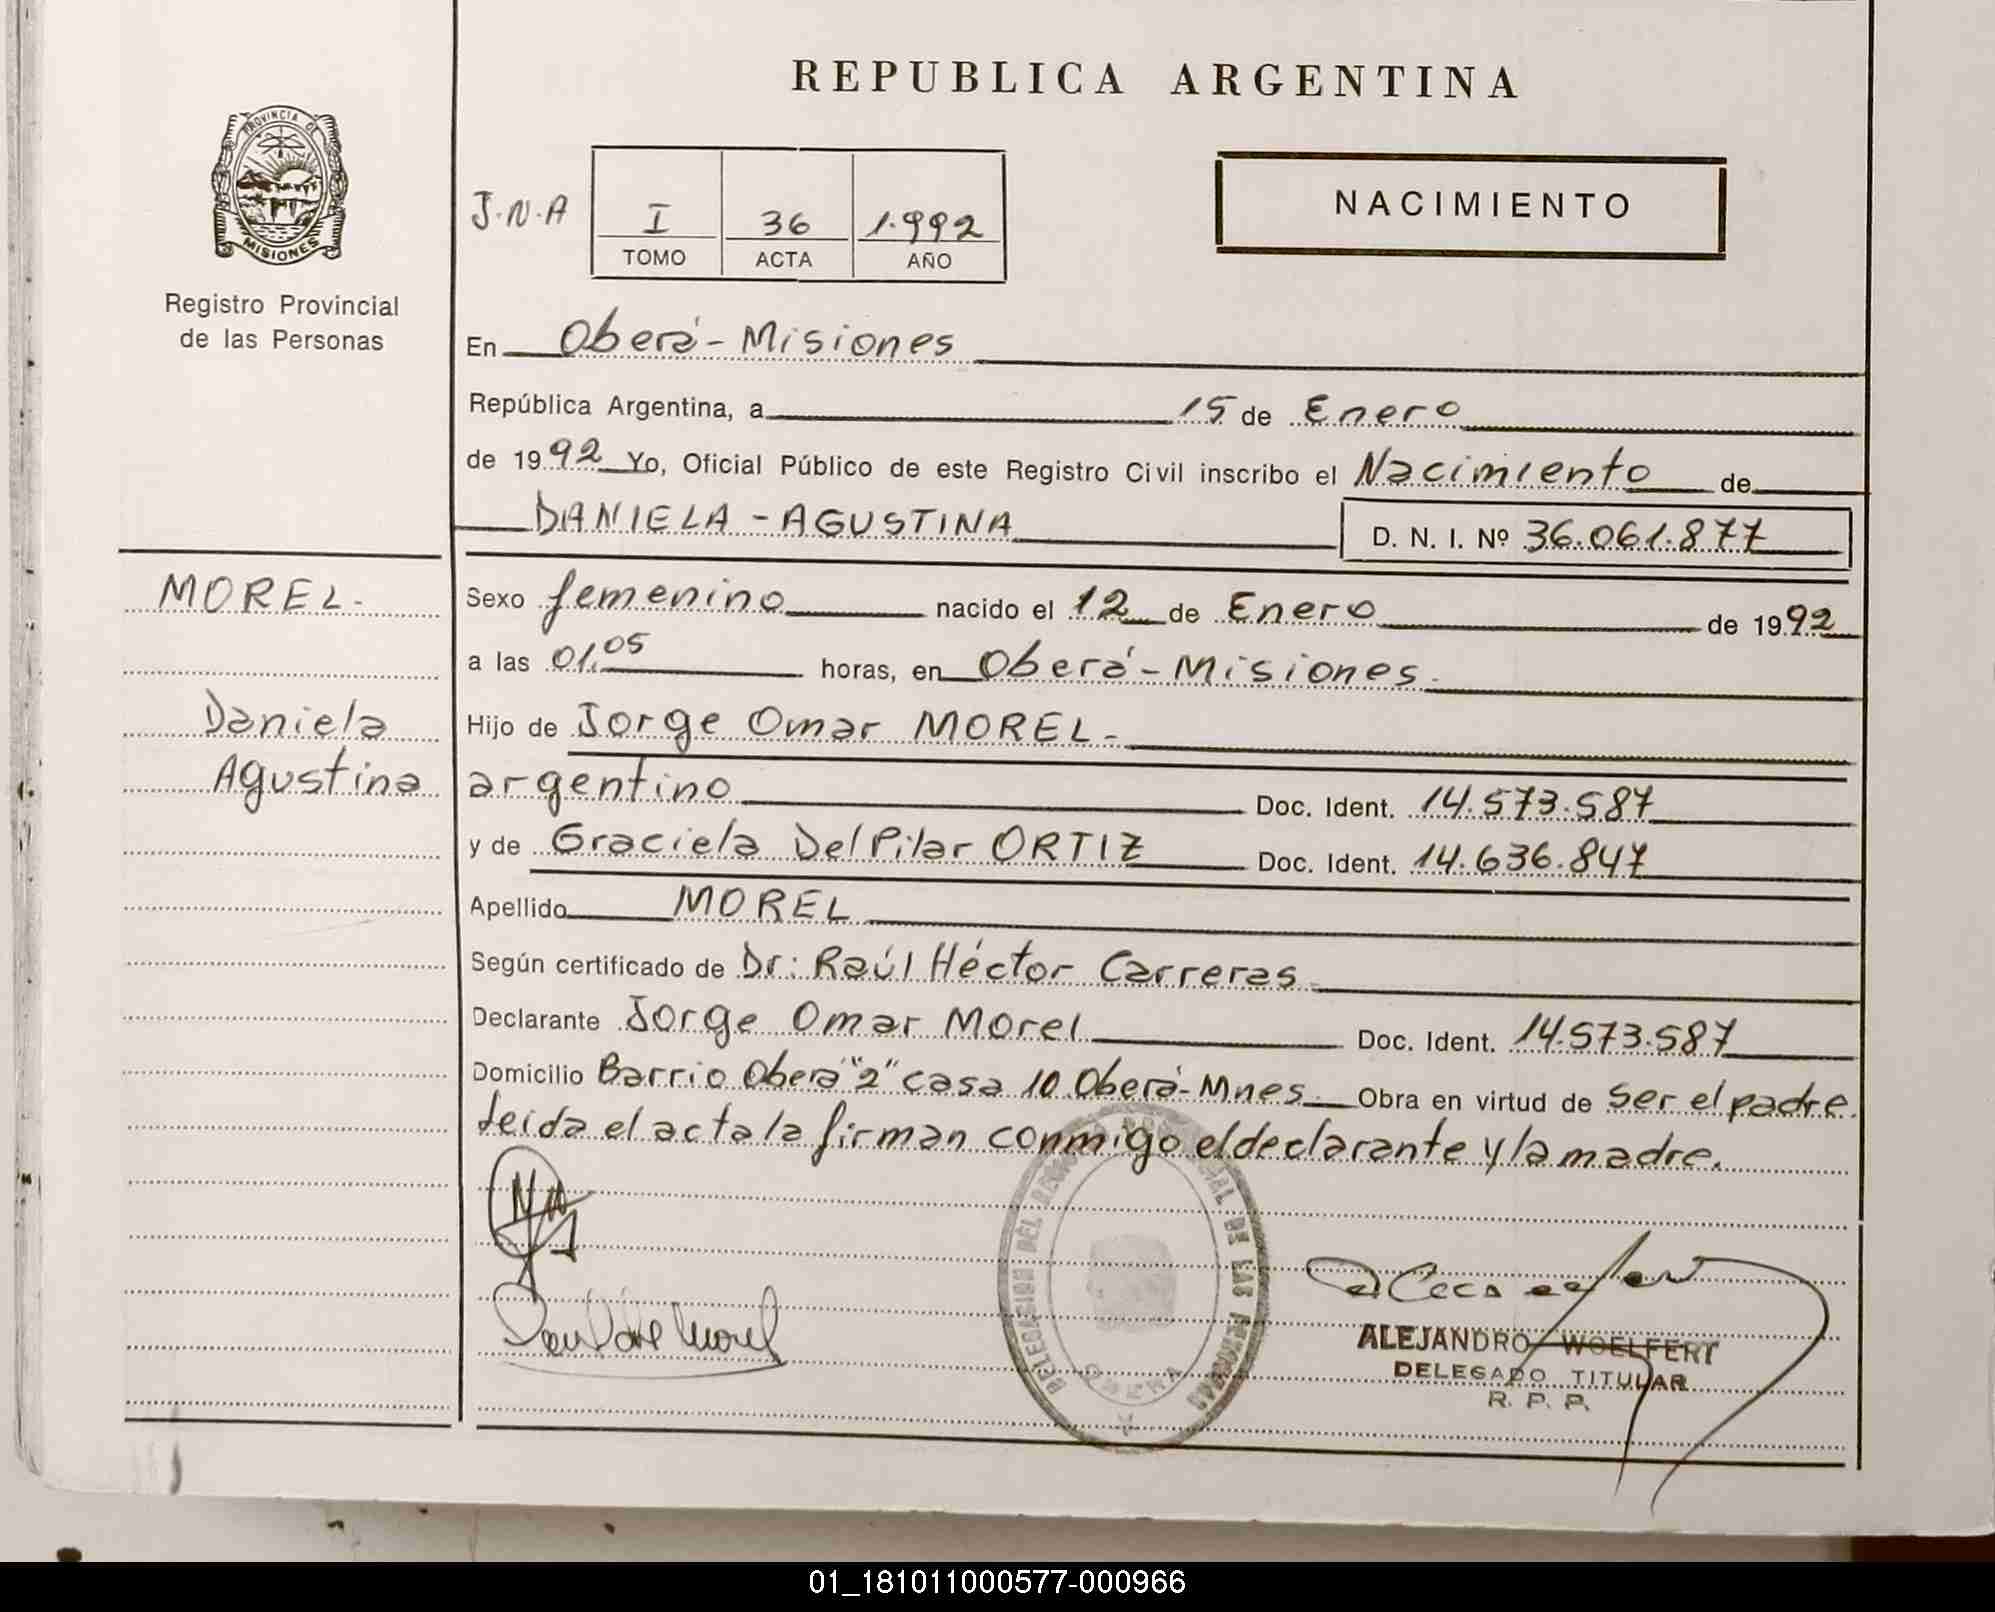 REPUBLICA ARGENTINA
PROVINCIA DE
MISIONES
Registro Provincial
de las Personas
J.N.A
I 36 1.992
TOMO ACTA AÑO
NACIMIENTO
En Oberá - Misiones
República Argentina, a 15 de Enero
de 1992 Yo, Oficial Público de este Registro Civil inscribo el Nacimiento de
DANIELA - AGUSTINA D. N. I. Nº 36.061.877
MOREL.
Daniela
Agustina
Sexo femenino nacido el 12 de Enero de 1992
a las 01.05 horas, en Oberá - Misiones.
Hijo de Jorge Omar MOREL -
argentino Doc. Ident. 14.573.587
y de Graciela Del Pilar ORTIZ Doc. Ident. 14.636.847
Apellido MOREL
Según certificado de Dr: Raúl Héctor Carreras
Declarante Jorge Omar Morel Doc. Ident. 14.573.587
Domicilio Barrio Oberá "2" casa 10 Oberá - Mnes. Obra en virtud de ser el padre.
Leida el acta la firman conmigo el declarante y la madre.
DELEGACION DEL REGISTRO PROVINCIAL DE LAS PERSONAS
OBERA
ALEJANDRO WOELFERT
DELEGADO TITULAR
R. P. P.
01_181011000577-000966